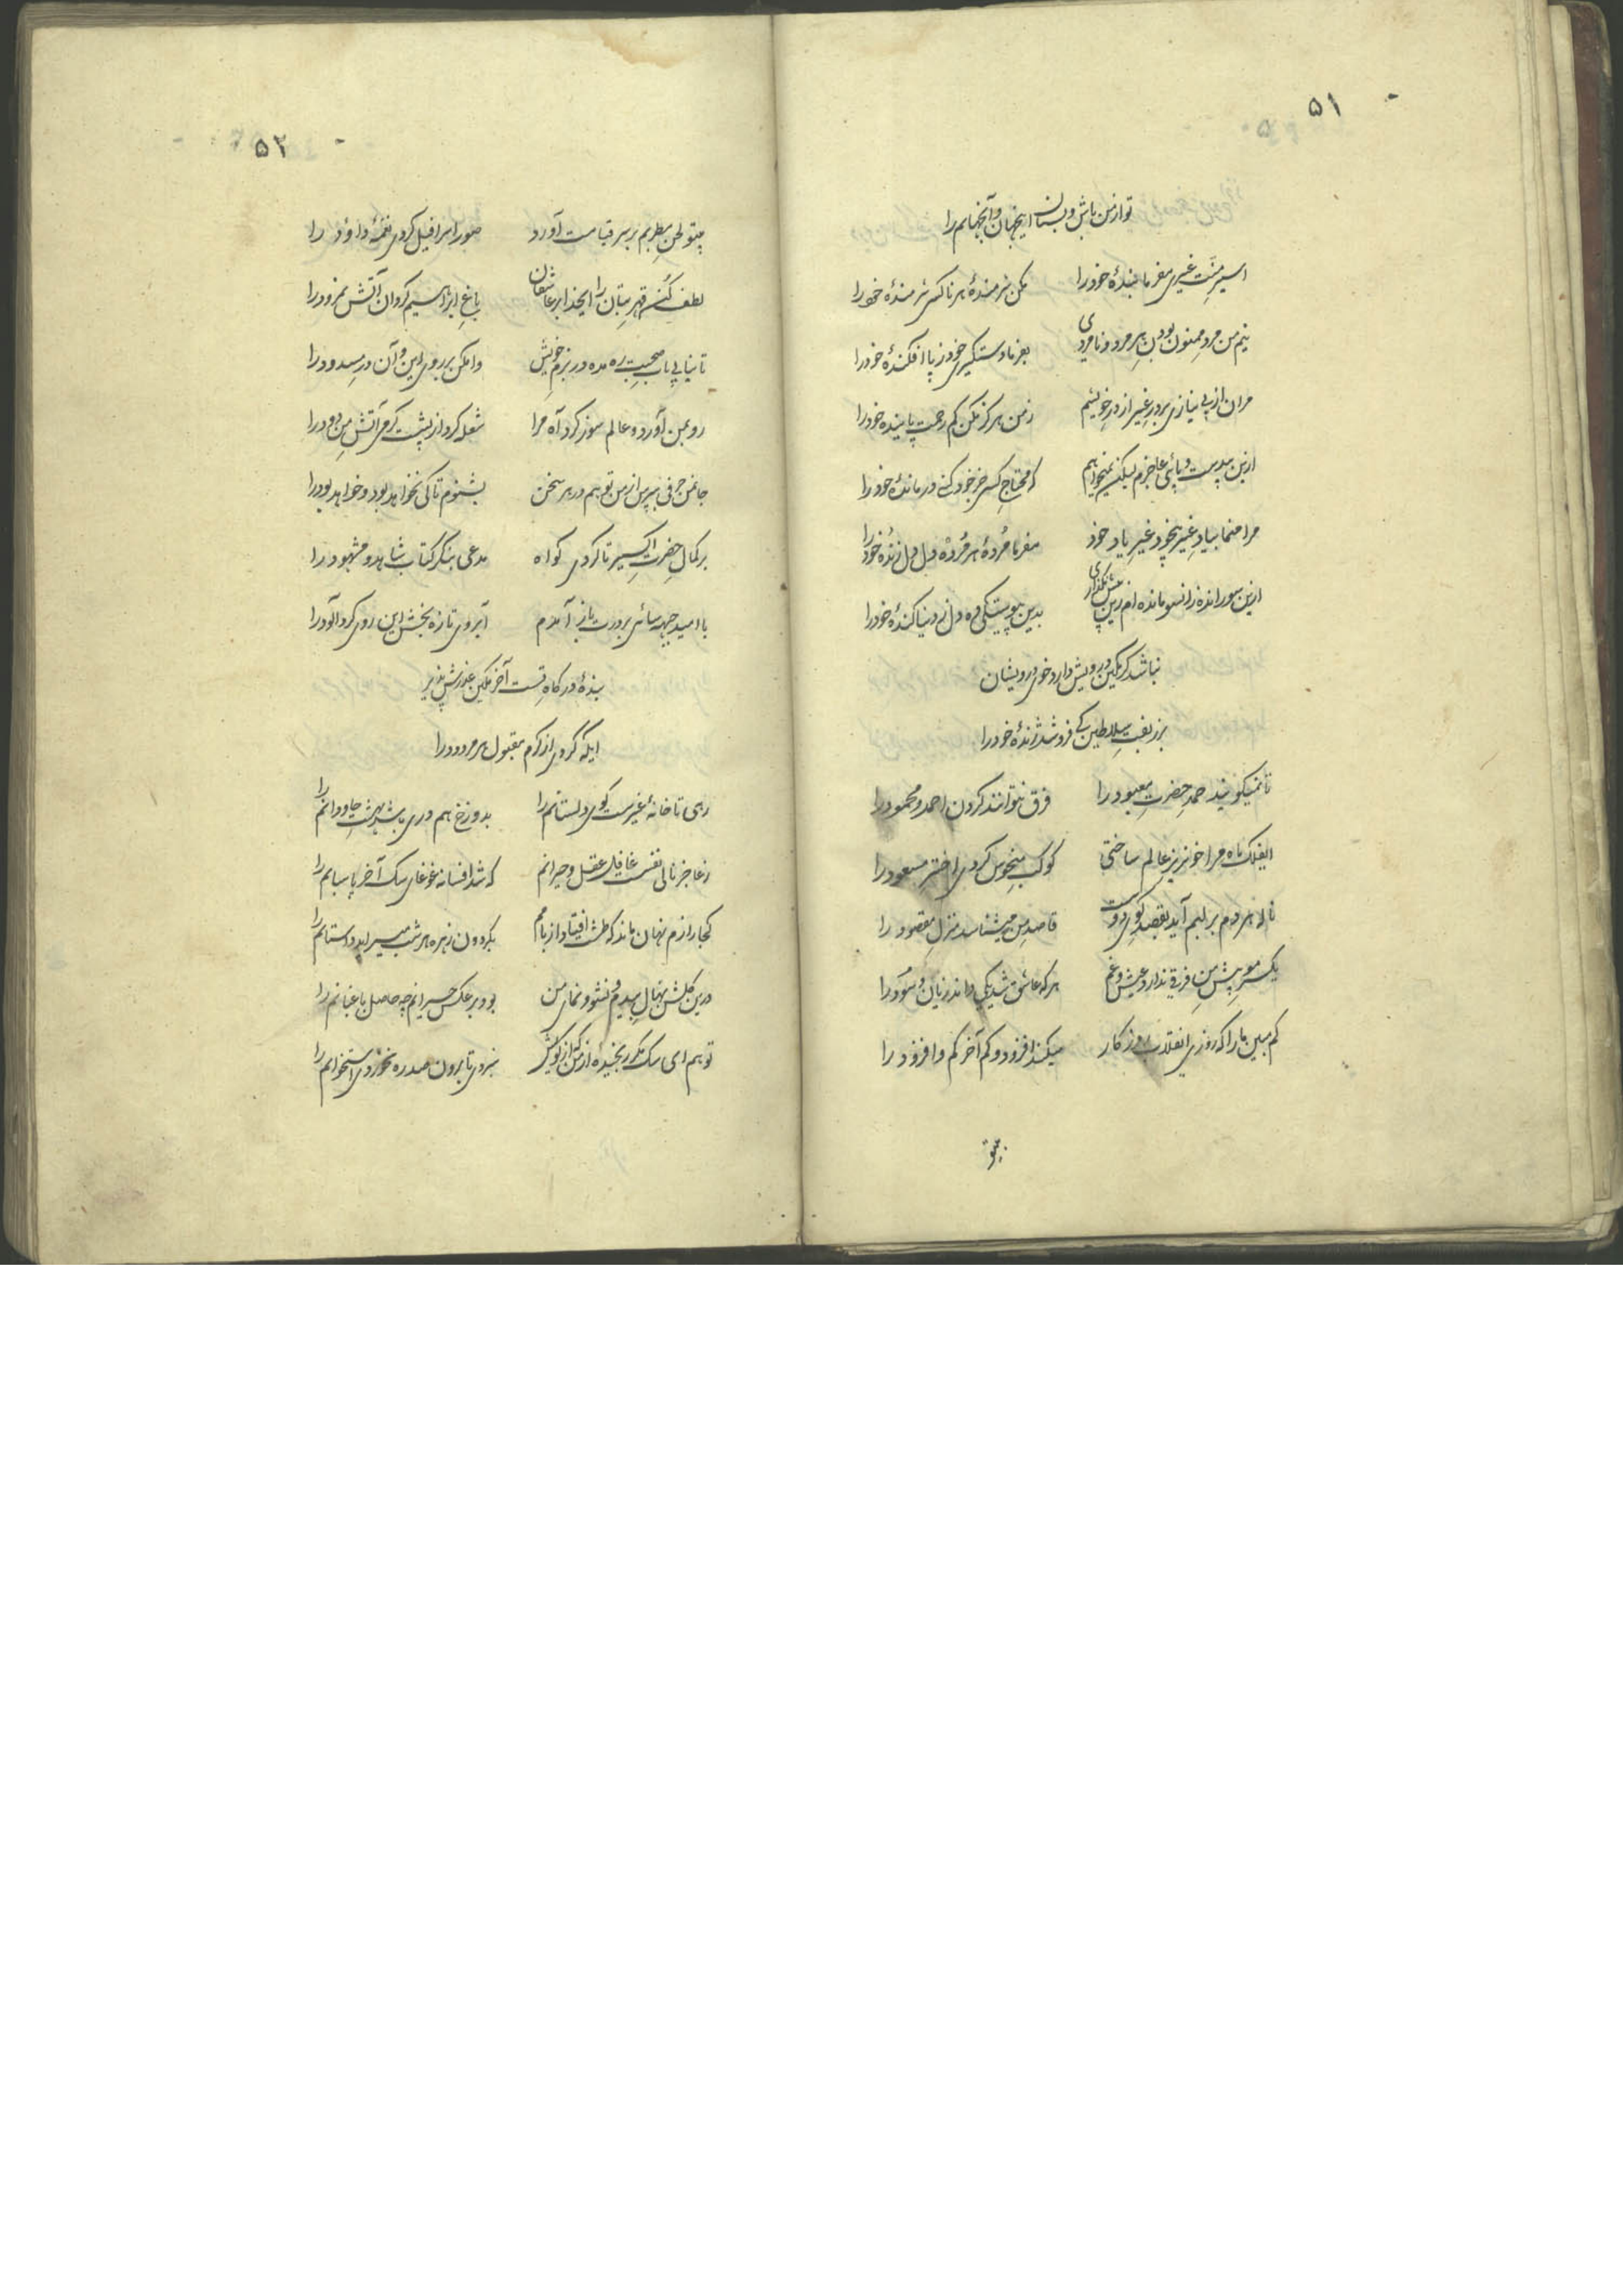 ۵۱
تو از من باش و بستان اینجهان و آنجهانم را
اسیر منّت غیری مفرما بندهٔ خود را مکن شرمندهٔ هر ناکس شرمندهٔ خود را
نیم من مرد ممنون بودن هر مرد و نامردی بفرما دستگیری خود ز پا افکندهٔ خود را
مران از بی نیازی بر در غیر از در خویشم ز من هرگز مکن کم رحمت پایندهٔ خود را
ازین بیدست و پائی عاجزم لیکن نمیخواهم که محتاج کسی جز خود کنی درماندهٔ خود را
مرا منما بیاد غیر بیخود غیر یاد خود مفرما مُردهٔ هر مُرده دل دل زندهٔ خود را
ازین سو رانده زانسو مانده‌ام زین پیش مگذاری بدین پیوستگی ده دل ز دنیا کندهٔ خود را
نباشد کر مکین درویش دارد خوی درویشان
بزربفت سلاطین کی فروشد ژندهٔ خود را
تا نمیگویند حمد حضرت معبود را فرق نتوانند کردن احمد و محمود را
ایفلک ماه مرا خونریز عالم ساختی کوکب منحوس کردی اختر مسعود را
ناله هر دم بر لبم آید بقصد کوی دوست قاصد من میشناسد منزل مقصود را
یکسر مو پیش من فرقی ندارد عیش و غم هر که عاشق شد یکی داند زیان و سود را
کم مبین ما را که روزی انقلاب روزگار میکند افزود و کم آخر کم و افزود را
بیتو
۵۲
بیتو لحن مطربم بر سر قیامت آورد صور اسرافیل کردی نغمهٔ داوُد را
لطف کُن قهر بتان را ایخدا بر عاشقان باغ ابراهیم گردان آتش نمرود را
تا نیابی باب صحبت ره مده در بزم خویش وا مکن بر روی این و آن در مسدود را
رو بمن آورد و عالم سوز کرد آه مرا شعله کرد از پشت گرمی آتش من دود را
جانمن حرفی بپرس از من تو هم در هر سخن بشنوم تا کی نخواهد بود و خواهد بود را
بر کمال حضرت اکسیر تا کردی گواه مدعی منکر کتاب شاهد و مشهود را
با امید جبهه سائی بر درت باز آمدم آبروی تازه بخش این روی گردآلود را
بندهٔ درگاه تست آخر مکین عذرش پذیر
ایکه گردی از کرم مقبول هر مردود را
رهی تا خانهٔ غیرست کوی دلستانم را بدوزخ هم دری باشد بهشت جاودانم را
ز عاجز نالی نفست غافل عقل و حیرانم که شد افسانه غوغای سگ آخر پاسبانم را
کجا رازم نهان ماند که طشت افتاد از بامم بگردون زهره هر شب میسراید داستانم را
درین گلشن نهال بیدم و نشو و نمای من بود بر عکس حیرانم چه حاصل باغبانم را
تو هم ای سگ مگر رنجیدهٔ از من کز کویش نبردی تا برون صد ره نخوردی استخوانم را